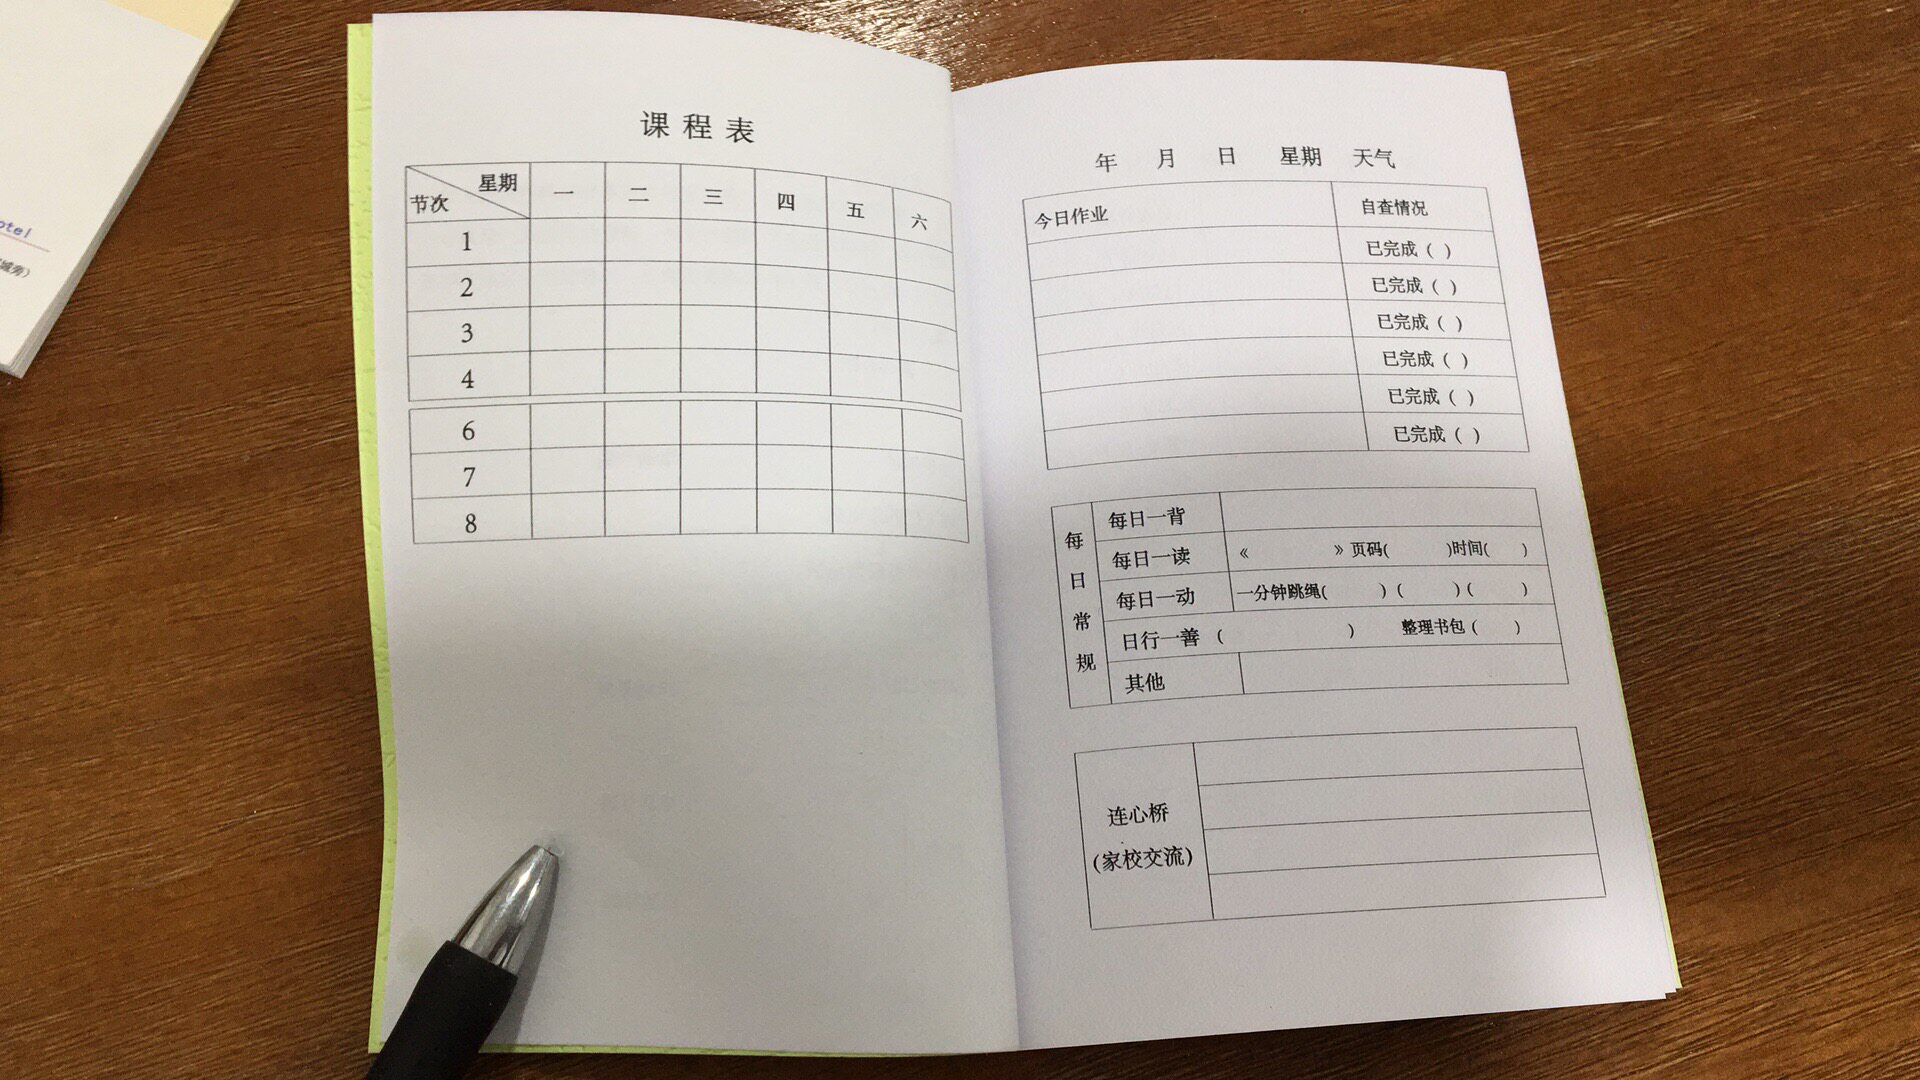 otel
城旁）
课程表
星期 一 二 三 四 五 六
节次
1
2
3
4
6
7
8
年 月 日 星期 天气
今日作业 自查情况
已完成（ ）
已完成（ ）
已完成（ ）
已完成（ ）
已完成（ ）
已完成（ ）
每日常规
每日一背
每日一读 《 》页码( )时间( )
每日一动 一分钟跳绳( ) ( ) ( )
日行一善 ( ) 整理书包 ( )
其他
连心桥
(家校交流)